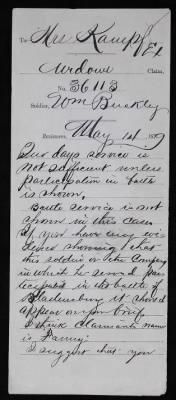 To Mrs Kampf Ex
Widows Claim,
No. 36113
Soldier, Wm Buckley
Reviewer, May 14, 1879
One days service is
not sufficient unless
participation in battle
is shown.
Battle service is not
shown in this case.
If you have any evi-
dence showing that
this soldier or the Company
in which he served par-
ticipated in the battle of
Bladensburg it should
appear on your brief.
I think Claimants name
is Fanny.
I suggest that you